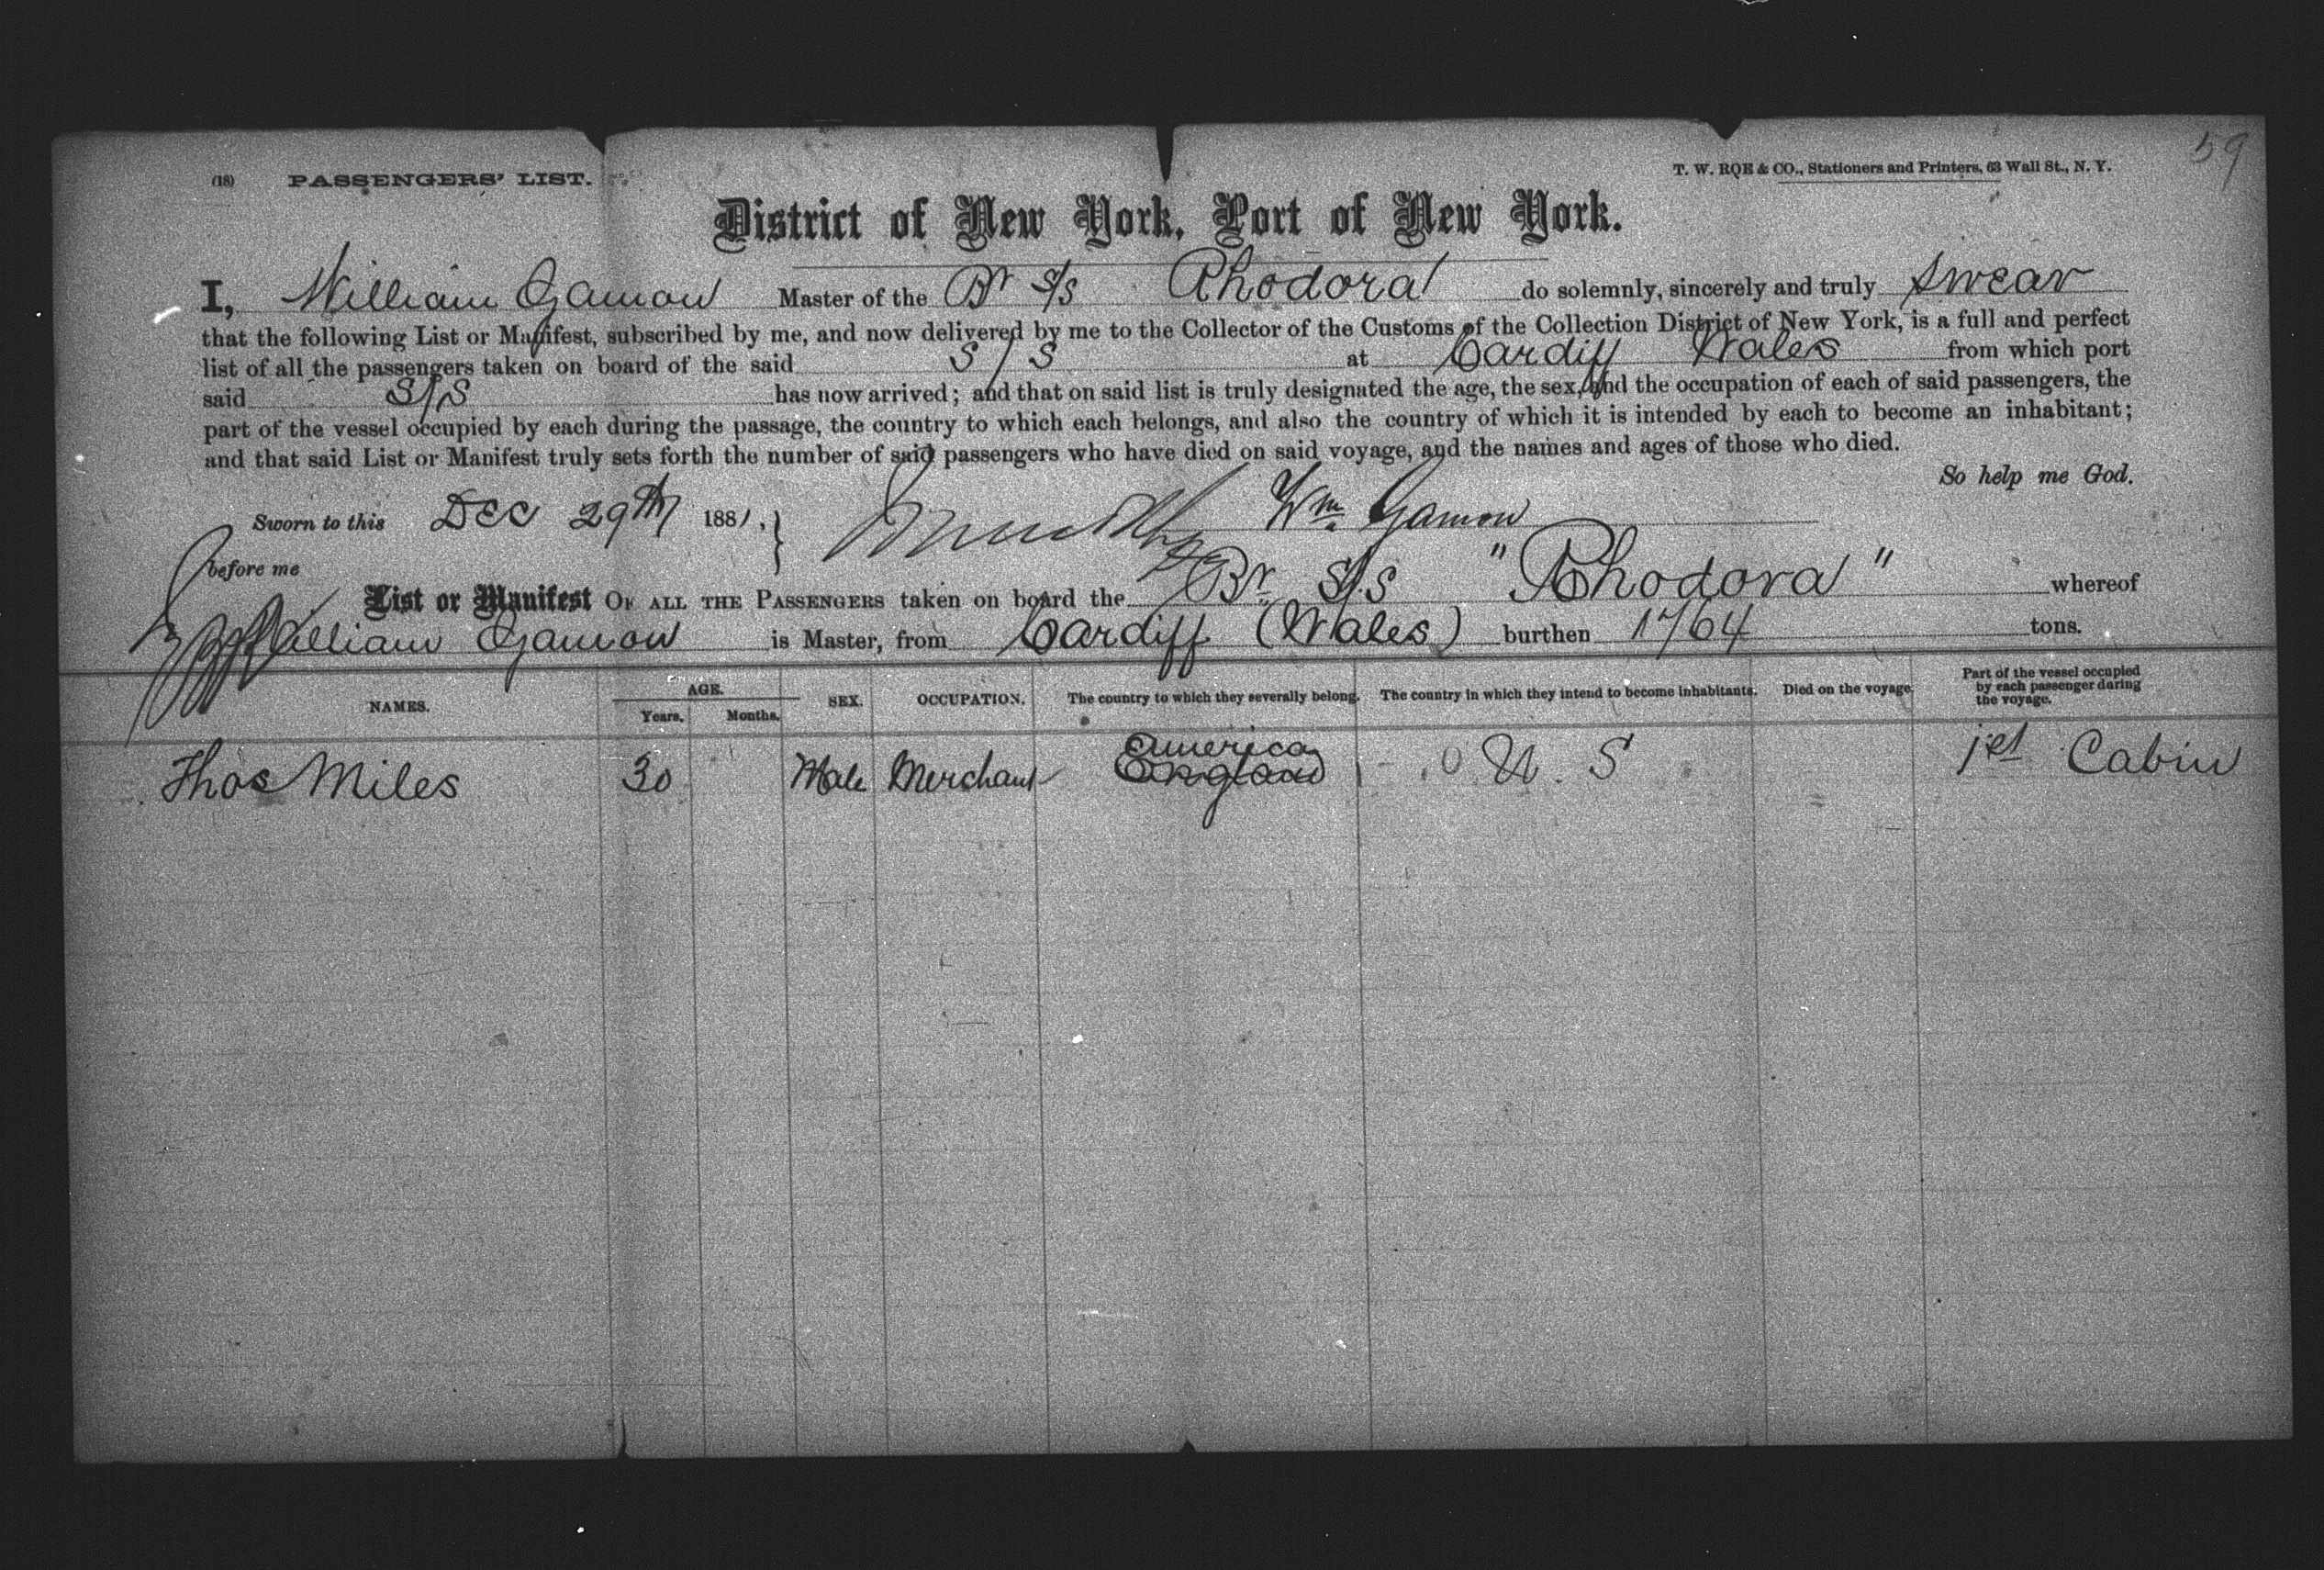 59
(18) PASSENGERS' LIST. T. W. ROE & CO., Stationers and Printers, 63 Wall St., N. Y.
District of New York, Port of New York.
I, William Gamon Master of the Br S/S Rhodora do solemnly, sincerely and truly swear
that the following List or Manifest, subscribed by me, and now delivered by me to the Collector of the Customs of the Collection District of New York, is a full and perfect
list of all the passengers taken on board of the said S/S at Cardiff Wales from which port
said S/S has now arrived; and that on said list is truly designated the age, the sex, and the occupation of each of said passengers, the
part of the vessel occupied by each during the passage, the country to which each belongs, and also the country of which it is intended by each to become an inhabitant;
and that said List or Manifest truly sets forth the number of said passengers who have died on said voyage, and the names and ages of those who died.
So help me God.
Sworn to this Dec 29th 1881, } Wm Gamon
before me
List or Manifest OF ALL THE PASSENGERS taken on board the Br S/S "Rhodora" whereof
William Gamon is Master, from Cardiff (Wales) burthen 1764 tons.
NAMES. AGE. Years. Months. SEX. OCCUPATION. The country to which they severally belong. The country in which they intend to become inhabitants. Died on the voyage. Part of the vessel occupied by each passenger during the voyage.
Thos Miles 30 Male Merchant America England U. S 1st Cabin